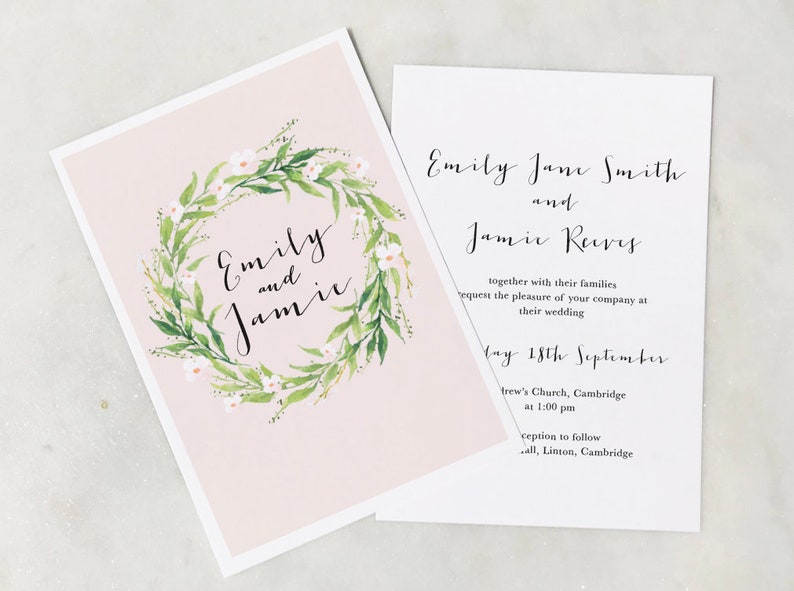 Emily
and
Jamie
Emily Jane Smith
and
Jamie Reeves
together with their families
request the pleasure of your company at
their wedding
18th September
Church, Cambridge
at 1:00 pm
to follow
Linton, Cambridge